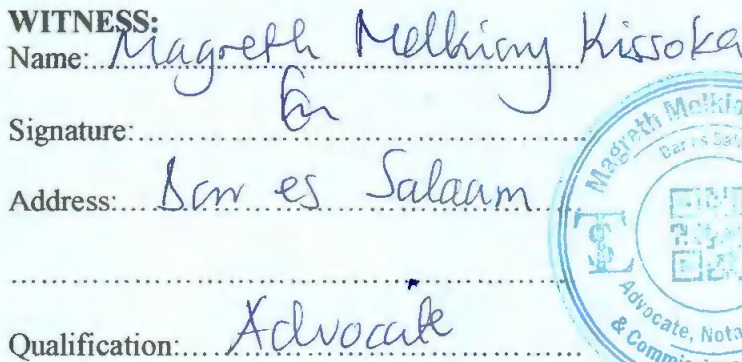 WITNESS:
Name: Magreth Melkiory Kissoka
Signature:
Address: Dar es Salaam
Qualification: Advocate
Magreth Melkio
Dar es Sala
Advocate, Nota
& Commis